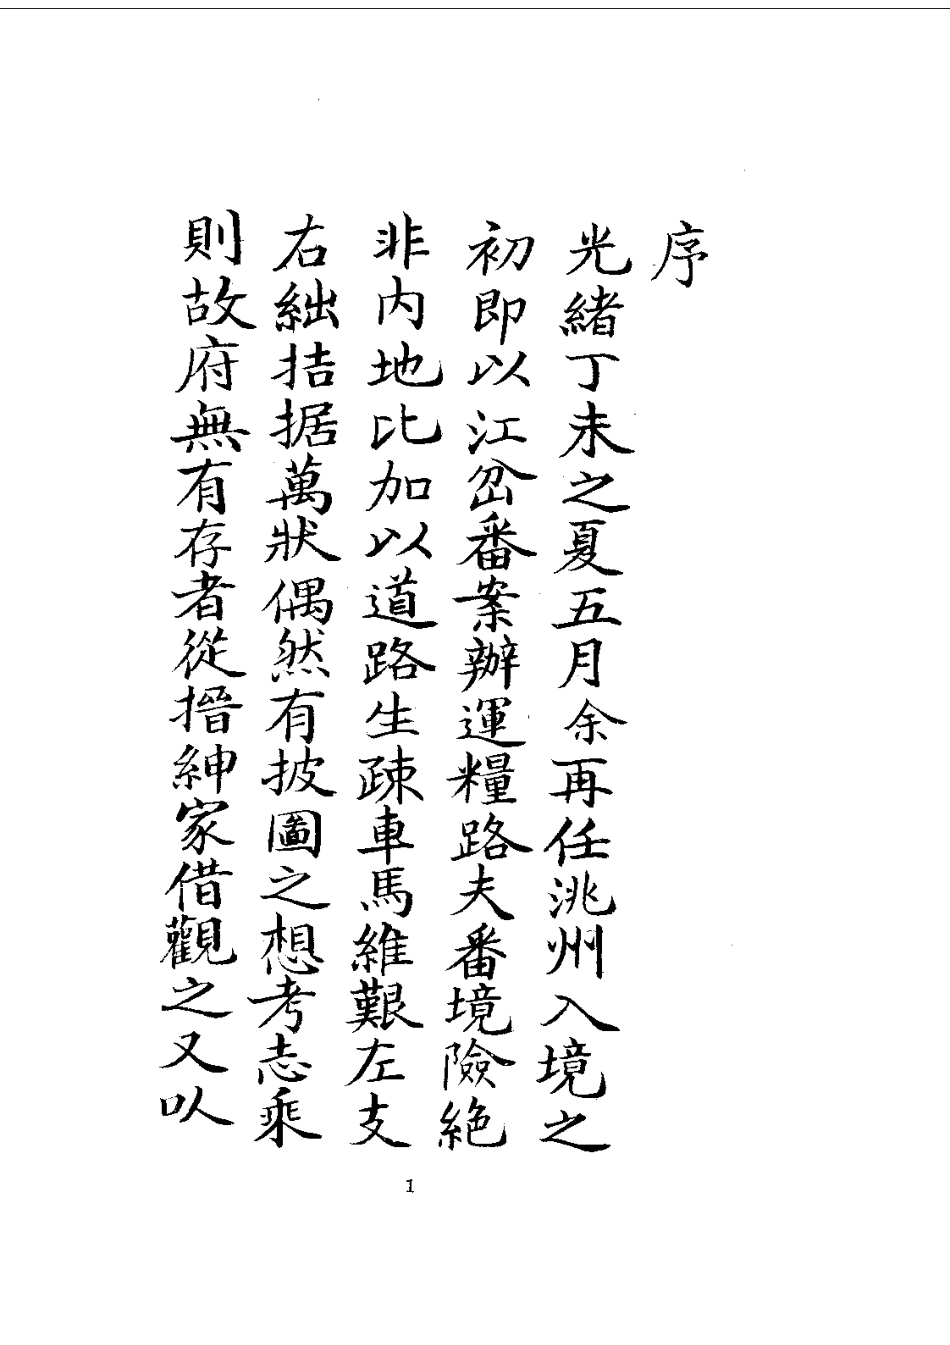 序
光緒丁未之夏五月余再任洮州入境之
初即以江岔番案辦運糧路夫番境險絕
非内地比加以道路生疎車馬維艱左支
右絀拮据萬狀偶然有披圖之想考志乘
則故府無有存者從搢紳家借觀之又㕥
1